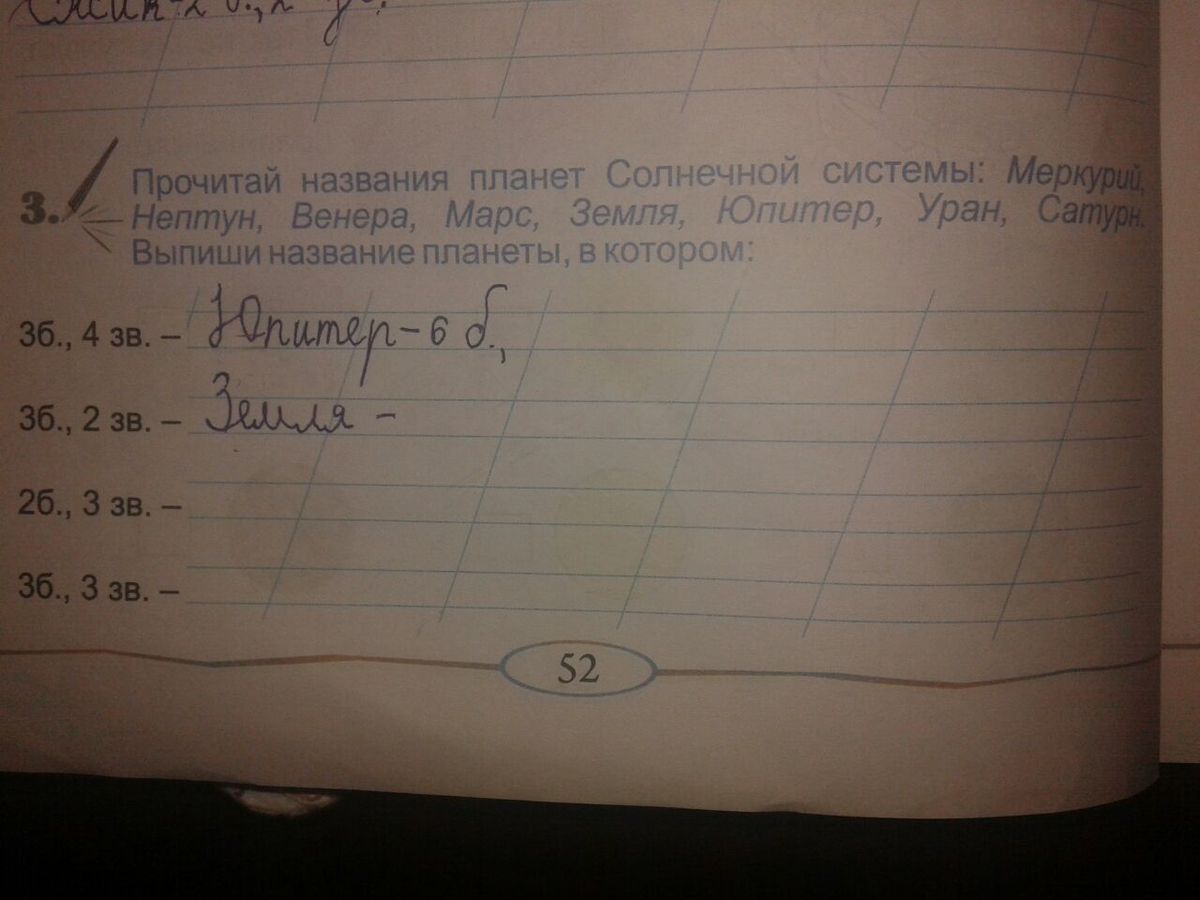 3. Прочитай названия планет Солнечной системы: Меркурий,
Нептун, Венера, Марс, Земля, Юпитер, Уран, Сатурн.
Выпиши название планеты, в котором:
3б., 4 зв. – Юпитер – 6 б.,
3б., 2 зв. – Земля –
2б., 3 зв. –
3б., 3 зв. –
52